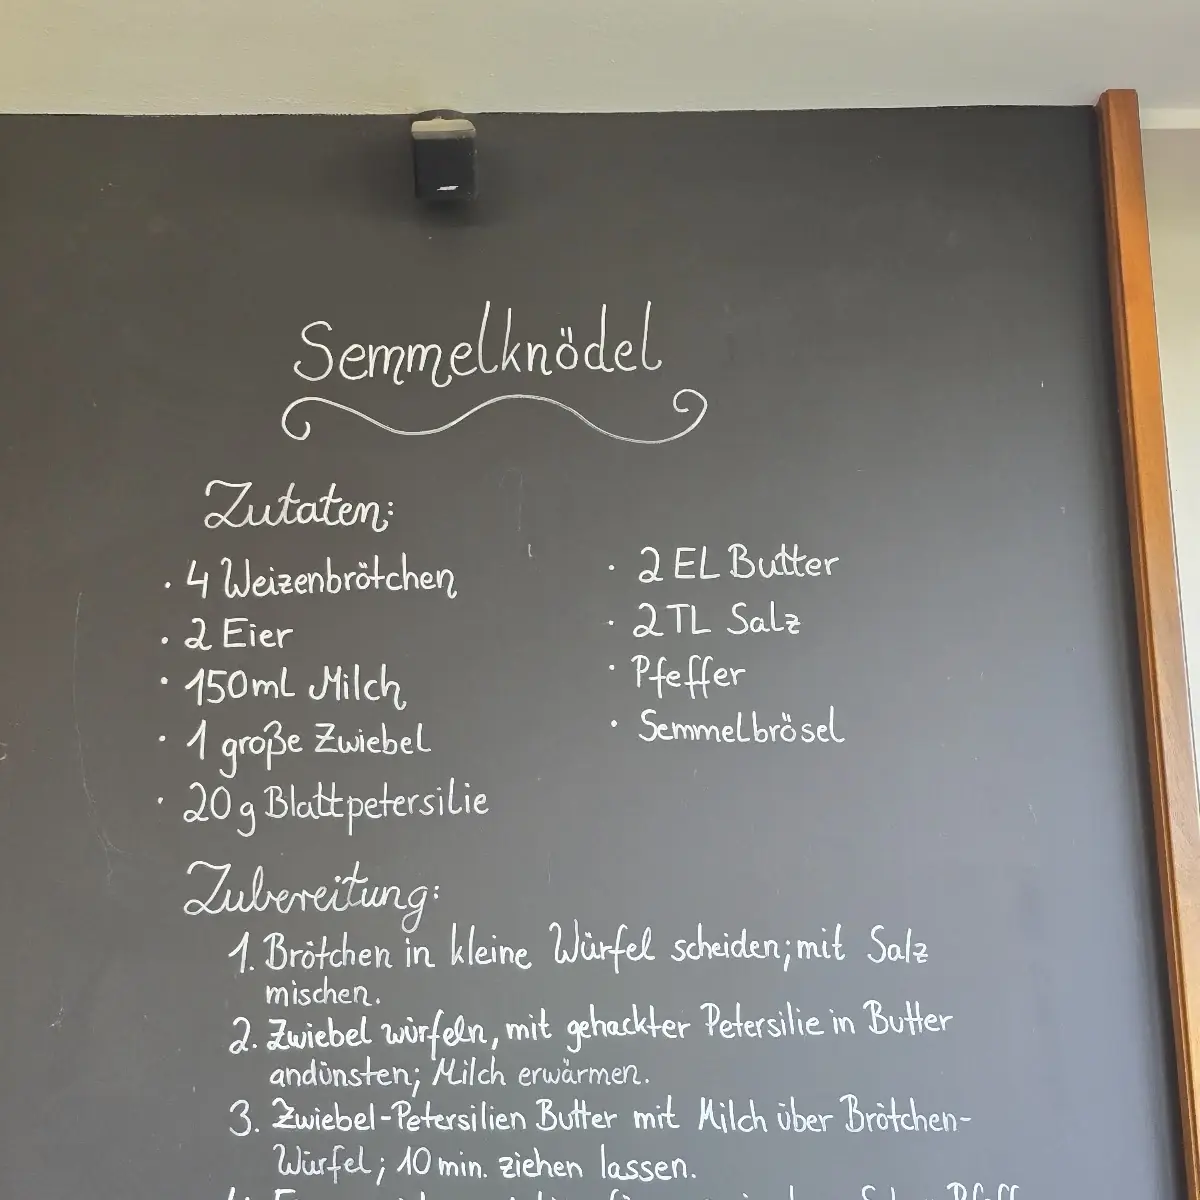 Semmelknödel
Zutaten:
· 4 Weizenbrötchen
· 2 Eier
· 150ml Milch
· 1 große Zwiebel
· 20g Blattpetersilie
· 2 EL Butter
· 2 TL Salz
· Pfeffer
· Semmelbrösel
Zubereitung:
1. Brötchen in kleine Würfel scheiden; mit Salz
mischen.
2. Zwiebel würfeln, mit gehackter Petersilie in Butter
andünsten; Milch erwärmen.
3. Zwiebel-Petersilien Butter mit Milch über Brötchen-
Würfel; 10 min. ziehen lassen.